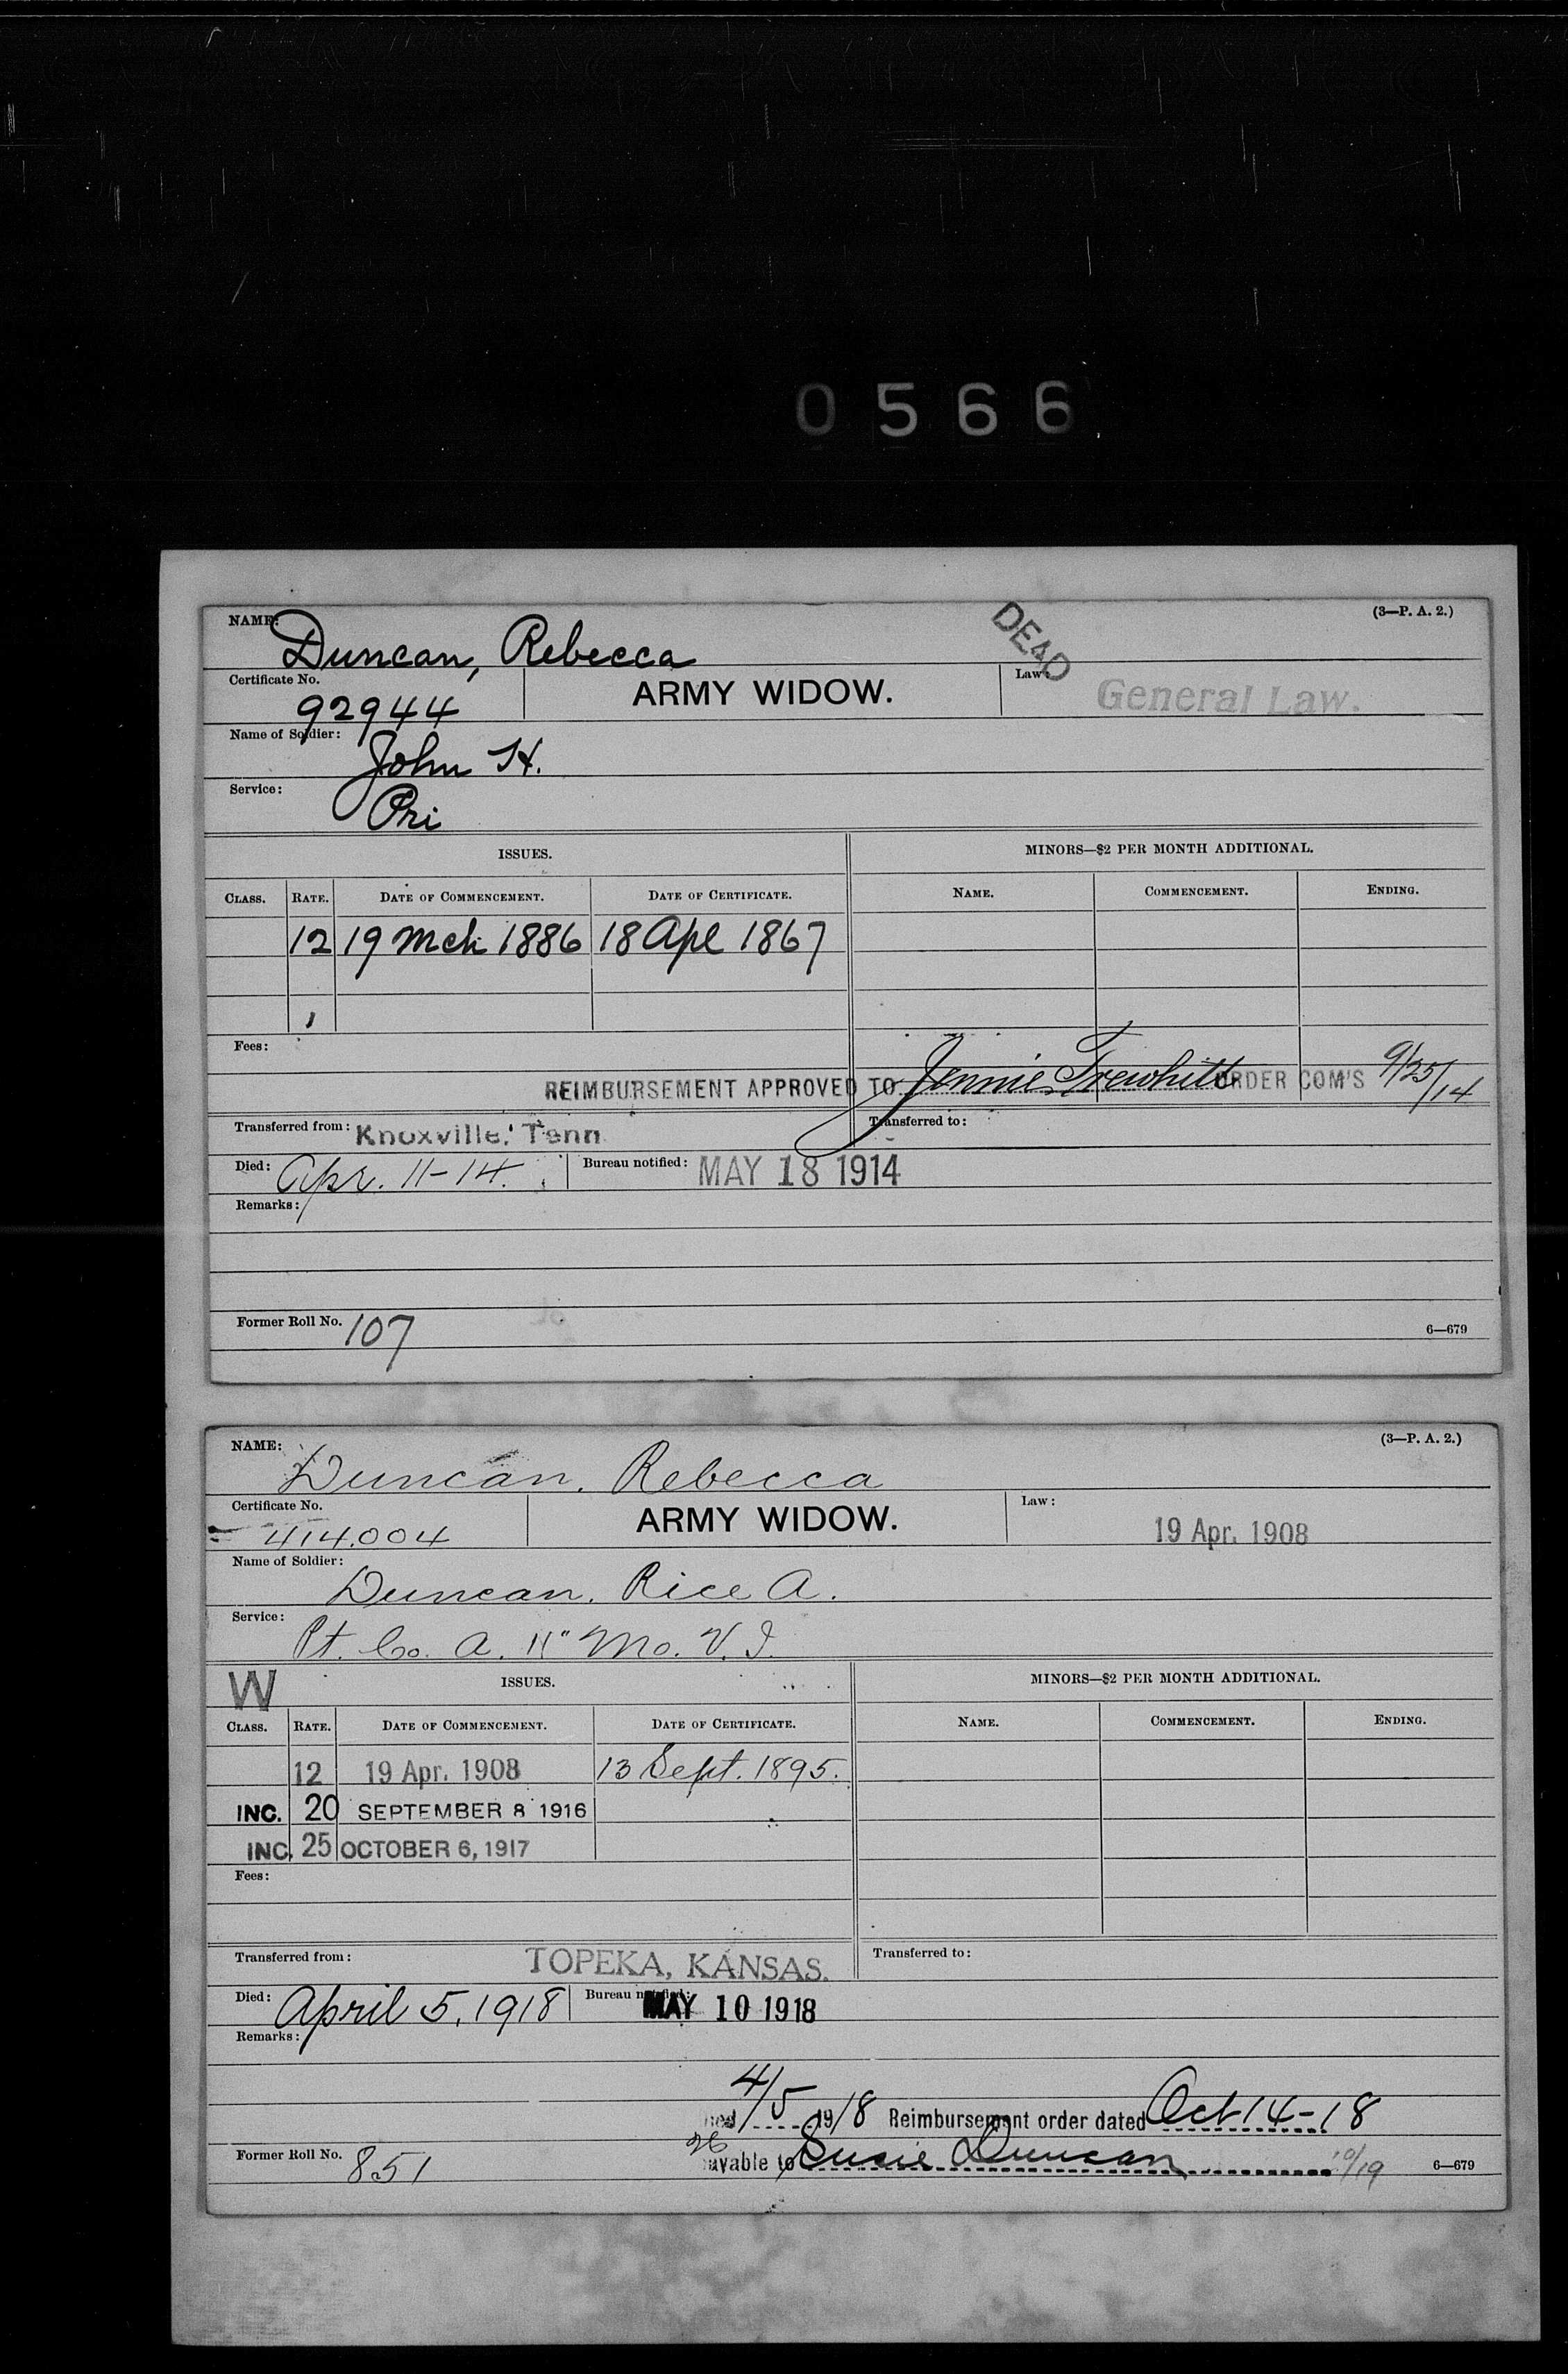 0566
NAME: Duncan, Rebecca DEAD (3—P. A. 2.)
Certificate No. 92944 ARMY WIDOW. Law: General Law.
Name of Soldier: John H.
Service: Pri
ISSUES. MINORS—$2 PER MONTH ADDITIONAL.
CLASS. RATE. DATE OF COMMENCEMENT. DATE OF CERTIFICATE. NAME. COMMENCEMENT. ENDING.
12 19 Mch 1886 18 Apl 1867
Fees:
REIMBURSEMENT APPROVED TO Jennie Trewhitt ORDER COM'S 9/25/14
Transferred from: Knoxville, Tenn. Transferred to:
Died: Apr. 11-14. Bureau notified: MAY 18 1914
Remarks:
Former Roll No. 107 6—679
NAME: Duncan, Rebecca (3—P. A. 2.)
Certificate No. 414.004 ARMY WIDOW. Law: 19 Apr. 1908
Name of Soldier: Duncan, Rice A.
Service: Pt. Co. A. 11" Mo. V. I.
W ISSUES. MINORS—$2 PER MONTH ADDITIONAL.
CLASS. RATE. DATE OF COMMENCEMENT. DATE OF CERTIFICATE. NAME. COMMENCEMENT. ENDING.
12 19 Apr. 1908 13 Sept. 1895.
INC. 20 SEPTEMBER 8 1916
INC. 25 OCTOBER 6, 1917
Fees:
Transferred from: TOPEKA, KANSAS. Transferred to:
Died: April 5, 1918 Bureau notified: MAY 10 1918
Remarks:
4/5 1918 Reimbursement order dated Oct 14-18
Former Roll No. 851 ayable to Susie Duncan 10/19 6—679